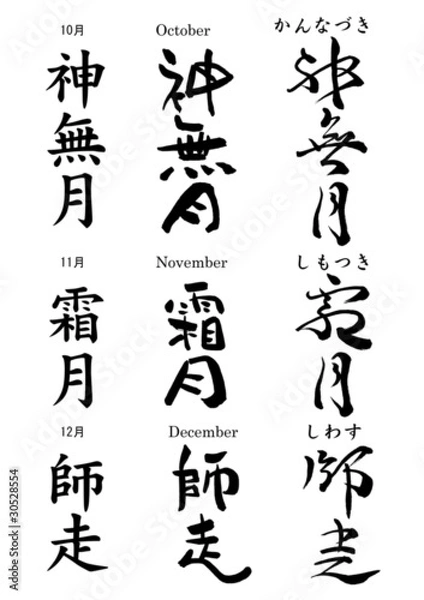 10月 October かんなづき
神無月 神無月 神無月
11月 November しもつき
霜月 霜月 霜月
12月 December しわす
師走 師走 師走
Adobe Stock | #30528554